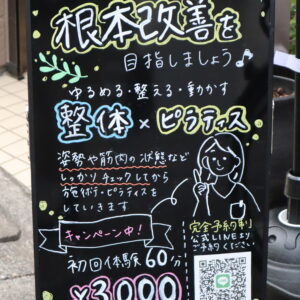 根本改善を
目指しましょう♪
ゆるめる・整える・動かす
整体×ピラティス
姿勢や筋肉の状態など
しっかりチェックしてから
施術・ピラティスを
していきます
キャンペーン中!
初回体験60分
¥3,000
完全予約制
公式LINEより
ご予約ください